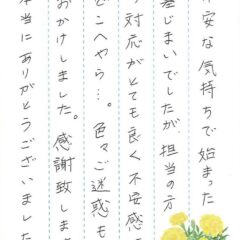 不安な気持ちで始まった
墓じまいでしたが、担当の方
対応がとても良く不安感
どこへやら…。色々ご迷惑も
おかけしました。感謝致しま
本当にありがとうございました